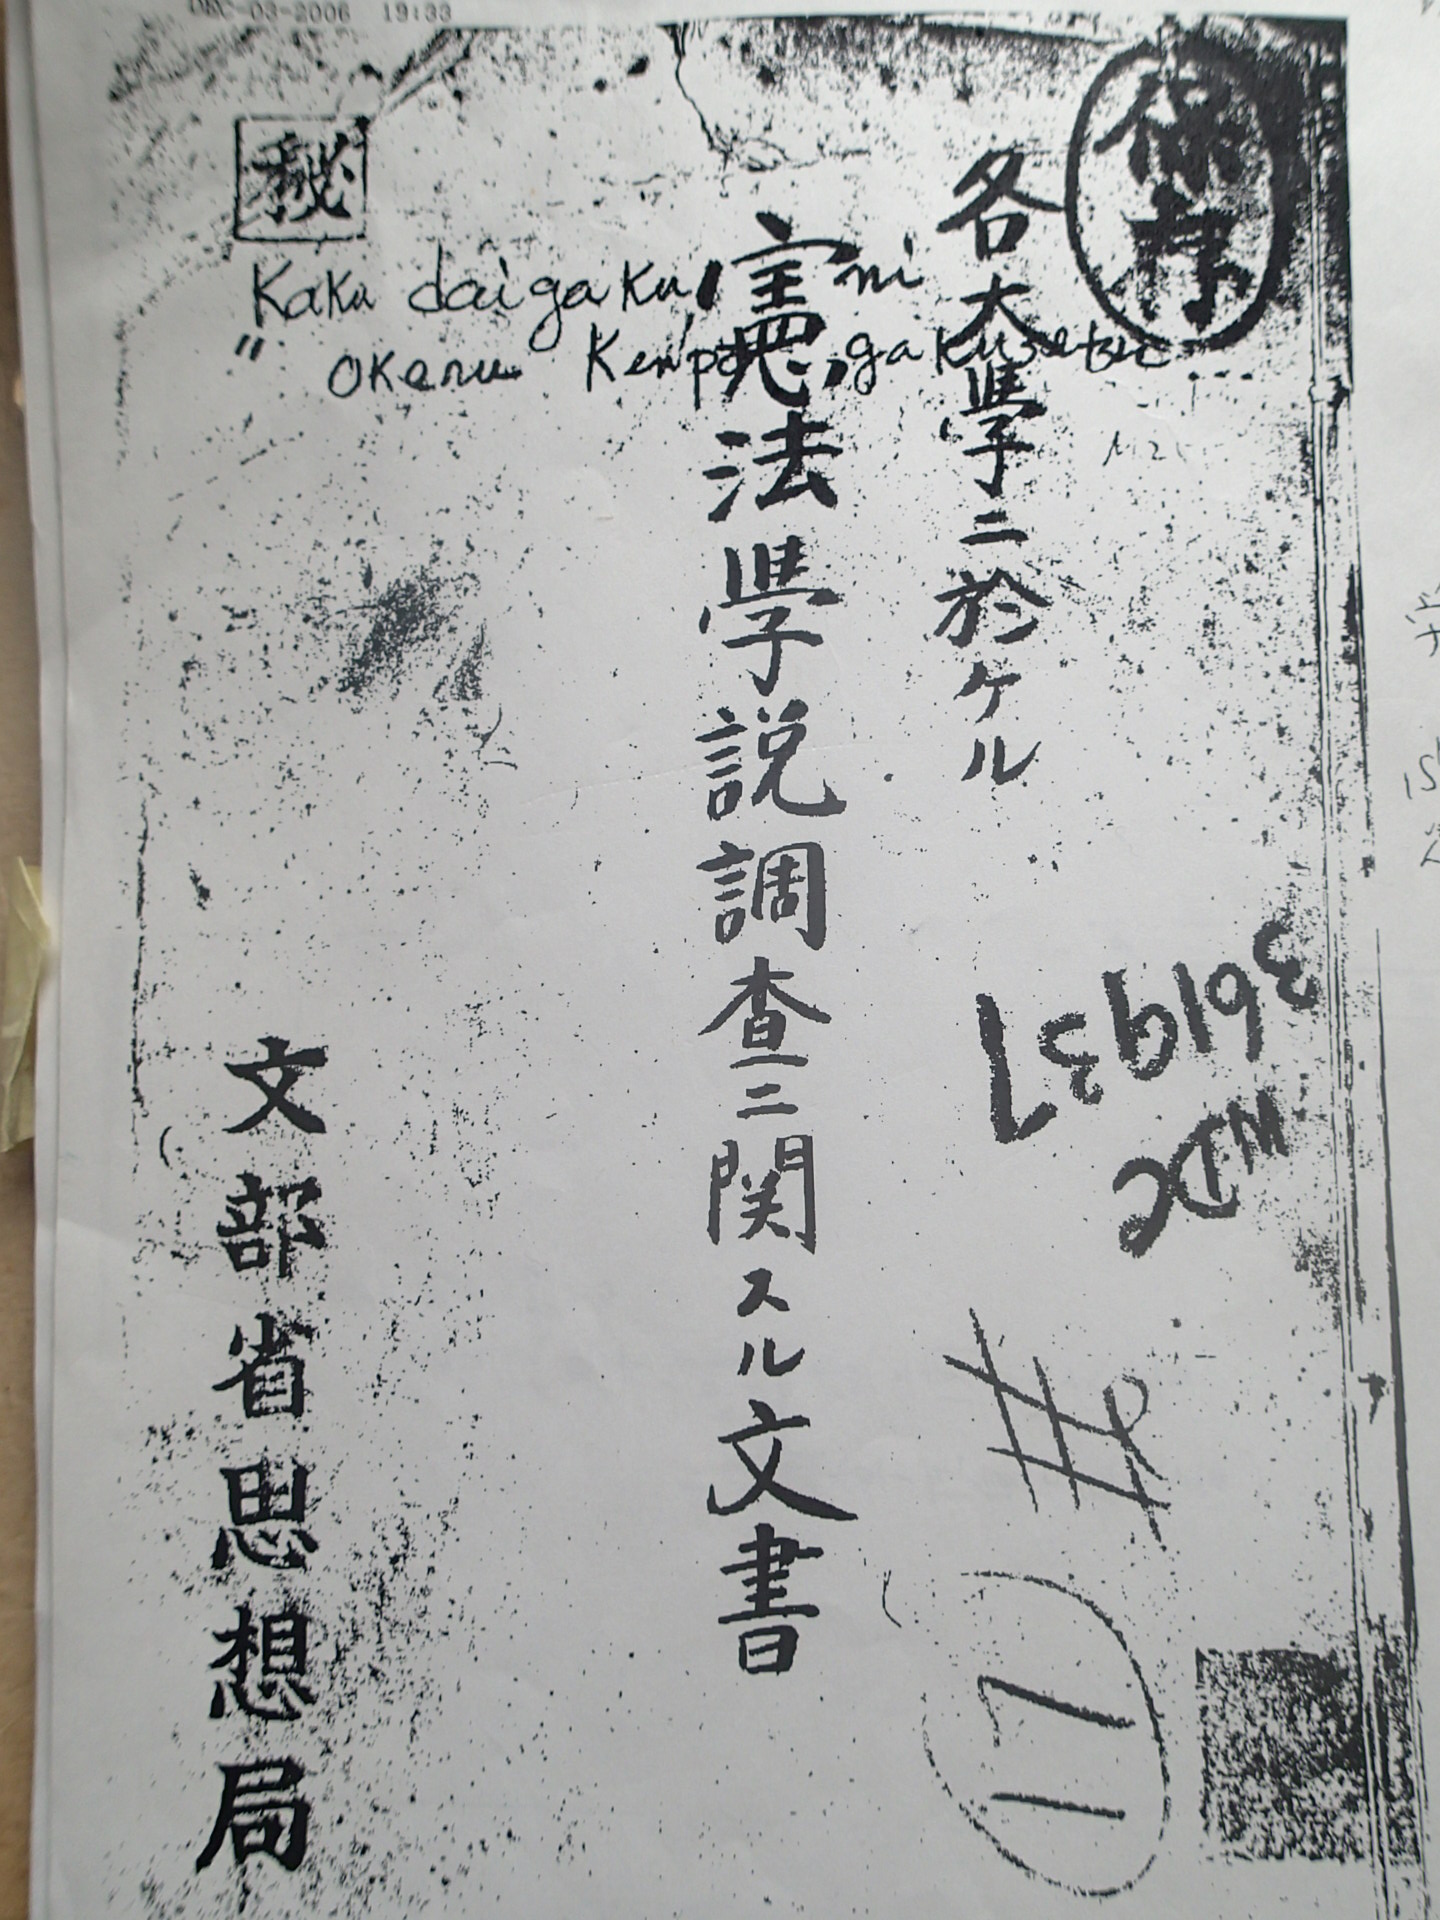 DEC-03-2006 19:33
保存
秘
各大學ニ於ケル
憲法學説調査ニ関スル文書
文部省思想局
Kaku daigaku, ni
" okeru Kenpō, gakusetsu ...
361937
WDC